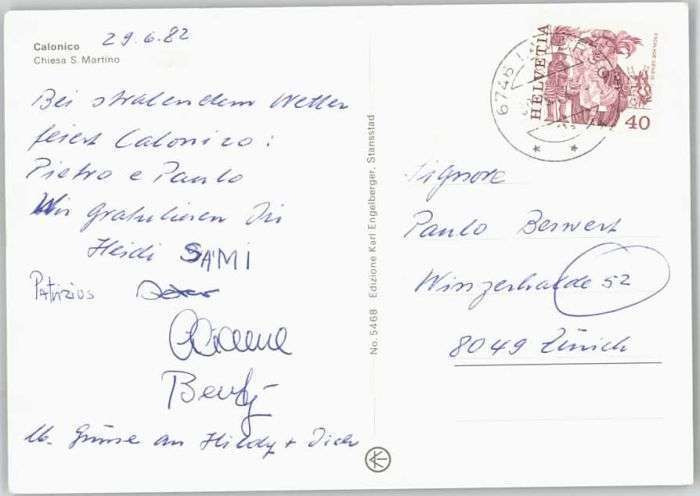 Calonico
Chiesa S. Martino
29.6.82
Bei stralendem Wetter
feiert Calonico:
Pietro e Paulo
Wir gratulieren Dir
Heidi SAMI
Patrizius
Liliane
lb. Grüsse an Hildy + Dich
No. 5468 Edizione Karl Engelberger, Stansstad
HELVETIA
40
6746
Signore
Paulo Beswert
Winzerhalde 52
8049 Zürich